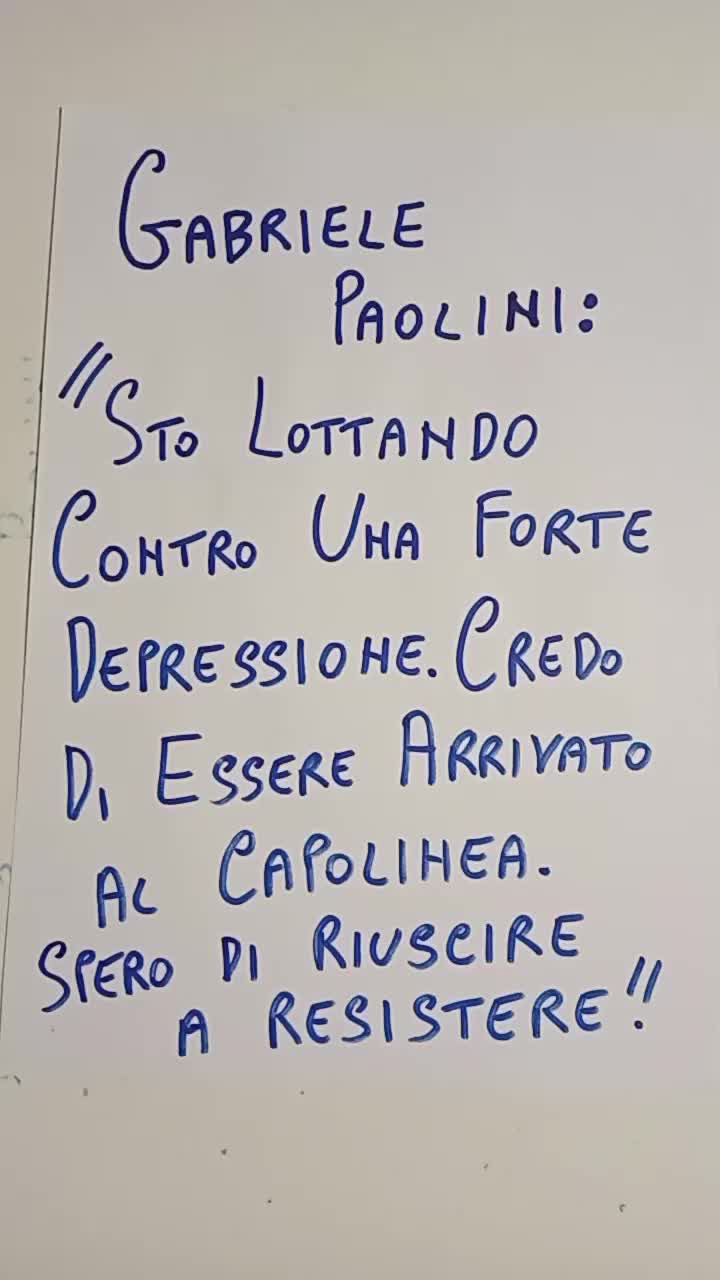 GABRIELE
PAOLINI:
"STO LOTTANDO
CONTRO UNA FORTE
DEPRESSIONE. CREDO
DI ESSERE ARRIVATO
AL CAPOLINEA.
SPERO DI RIUSCIRE
A RESISTERE".